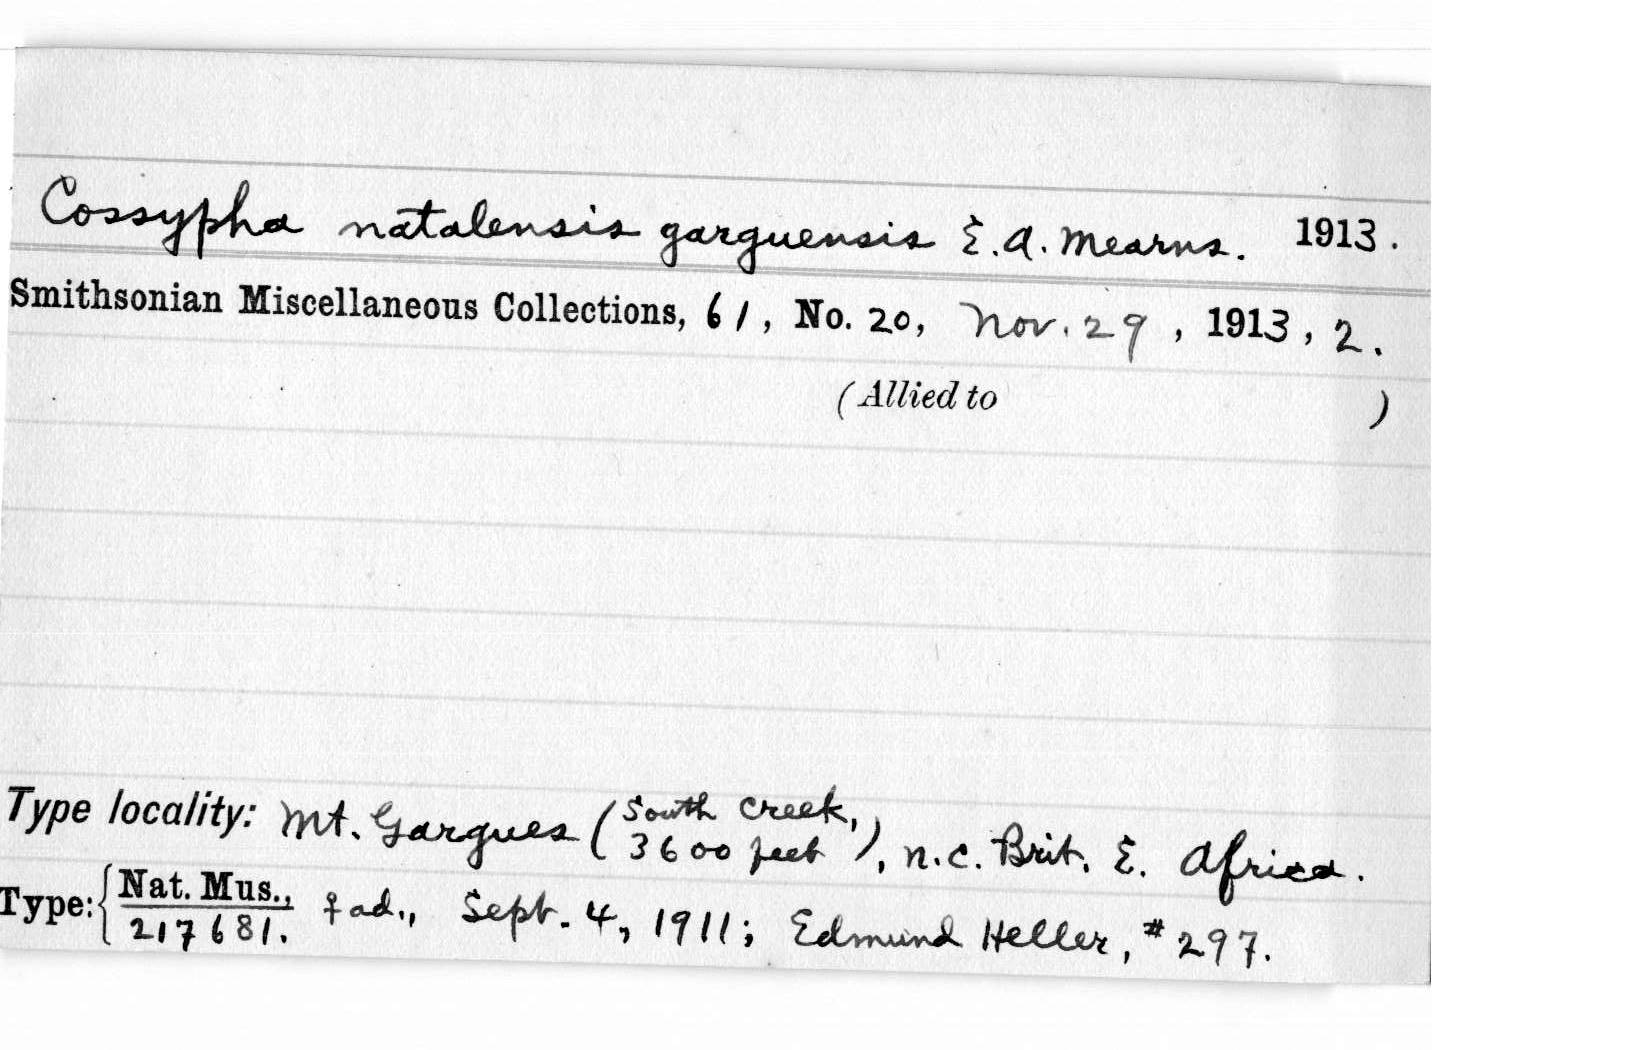 Cossypha natalensis garguensis E.A. Mearns. 1913.
Smithsonian Miscellaneous Collections, 61, No. 20, Nov. 29, 1913, 2.
(Allied to )
Type locality: Mt. Gargues (South Creek,
3600 feet), n.c. Brit. E. Africa.
Type: { Nat. Mus., ♀ ad., Sept. 4, 1911; Edmund Heller, #297.
217681.